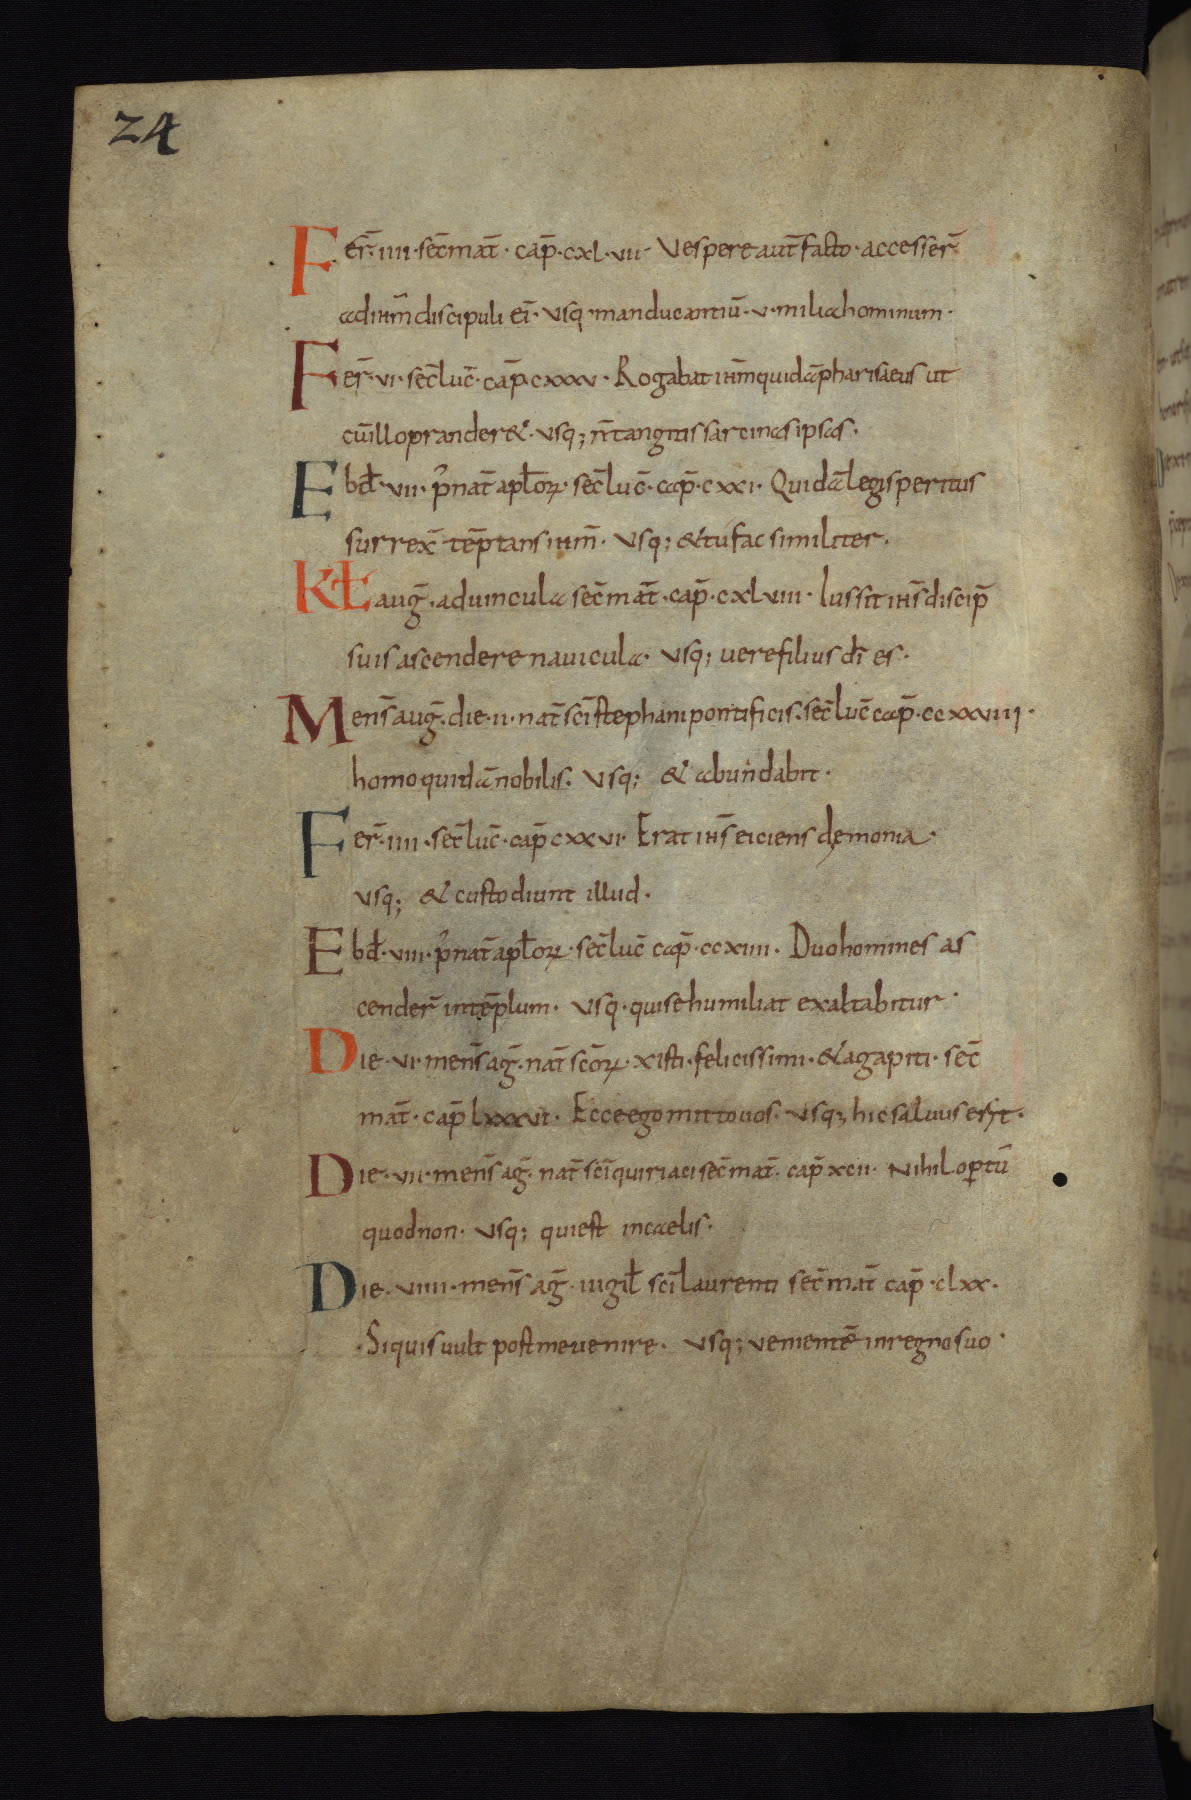 24
Fer̄·iiii·sec̄ mat̄· cap̄·cxl·vii· Vespere aut̄ facto·accesser̄
ad ihm̄ discipuli ei᷒· usq· manducantiū·v·milia hominum·
Fer̄·vi·sec̄ luc̄·cap̄·cxxxv· Rogabat ihm̄ quidā pharisaeus ut
cū illo pranderet·usq; n̄ tangitis sarcinas ipsas·
Ebd̄·vii·p̄ nat̄ apl̄oꝝ·sec̄ luc̄·cap̄·cxxi· Quidā legisperitus
surrex̄ tēptans ihm̄· usq; & tu fac similiter·
Kł aug̅·ad uincula sec̄ mat̄·cap̄·cxlviii· Iussit ih̄s discip̄
suis ascendere nauicula· usq; uere filius dī es·
Mens̄ aug̅·die·ii·nat̄ sc̄i stephani pontificis·sec̄ luc̄ cap̄·ccxxviiii·
homo quidā nobilis· usq; & abundabit·
Fer̄·iiii·sec̄ luc̄·cap̄ cxxvi· Erat ih̄s eiciens dęmonia·
usq; & custodiunt illud·
Ebd̄·viii·p̄ nat̄ apl̄oꝝ·sec̄ luc̄ cap̄·ccxiiii· Duo homines as
cender̄ in tēplum· usq· qui se humiliat exaltabitur·
Die·vi·mens̄ ag̅·nat̄ sc̄oꝝ·xisti·felicissimi·& agapiti·sec̄
mat̄·cap̄ lxxxvi· Ecce ego mitto uos· usq; hic saluus erit·
Die·vii·mens̄ ag̅·nat̄ sc̄i quiriaci sec̄ mat̄·cap̄ xcii· Nihil opertū
quod non· usq; qui est in caelis·
Die·viiii·mens̄ ag̅·uigil̄ sc̄i laurenti sec̄ mat̄ cap̄·clxx·
·Si quis uult post me uenire· usq; uenientē in regno suo·